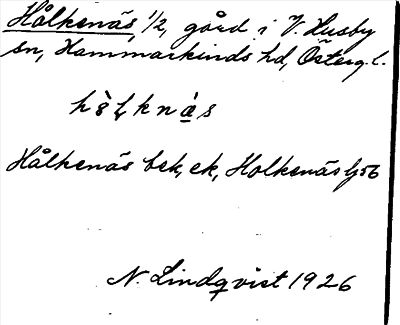 Hålkenäs 1/2, gård i V. Husby
sn, Hammarkinds hd, Österg. l.
Hålkenäs bek, ek, Holkenäs Gj 56
N. Lindqvist 1926